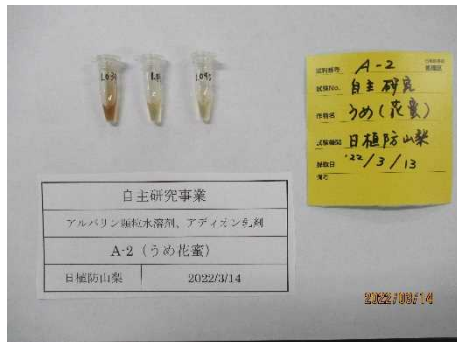 A-2
試験No. 自主研究
作物名 うめ(花蜜)
試験機関 日植防山梨
採取日 '22/3/13
備考
自主研究事業
アルバリン顆粒水溶剤、アディオン乳剤
A-2（うめ花蜜）
日植防山梨 2022/3/14
2022/03/14